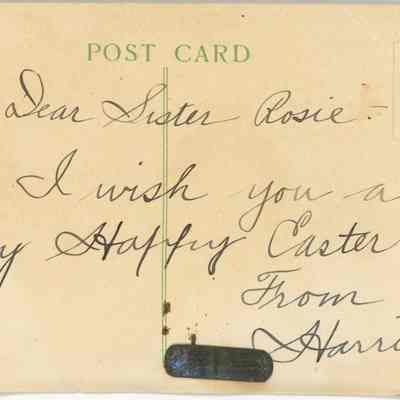 POST CARD
Dear Sister Rosie -
I wish you a
y Happy Easter
From
Harri